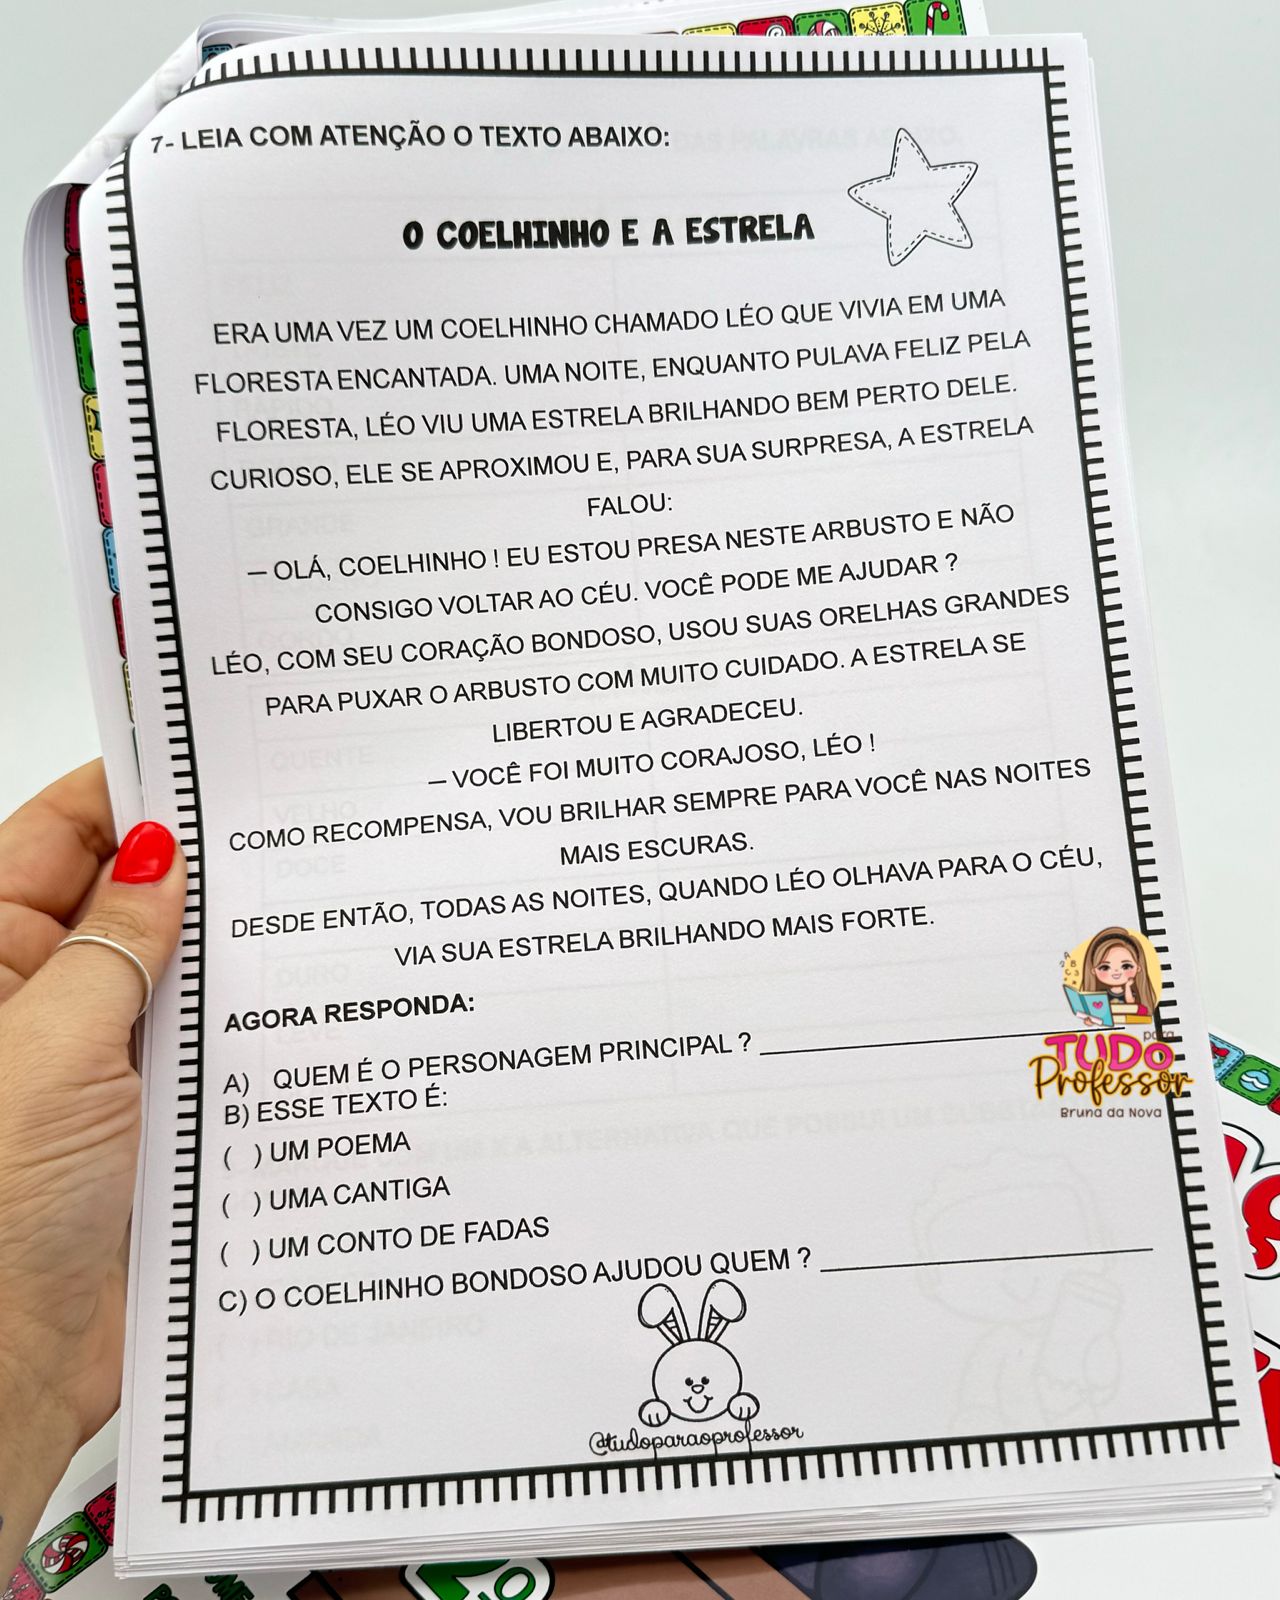 7- LEIA COM ATENÇÃO O TEXTO ABAIXO:
O COELHINHO E A ESTRELA
ERA UMA VEZ UM COELHINHO CHAMADO LÉO QUE VIVIA EM UMA
FLORESTA ENCANTADA. UMA NOITE, ENQUANTO PULAVA FELIZ PELA
FLORESTA, LÉO VIU UMA ESTRELA BRILHANDO BEM PERTO DELE.
CURIOSO, ELE SE APROXIMOU E, PARA SUA SURPRESA, A ESTRELA
FALOU:
— OLÁ, COELHINHO ! EU ESTOU PRESA NESTE ARBUSTO E NÃO
CONSIGO VOLTAR AO CÉU. VOCÊ PODE ME AJUDAR ?
LÉO, COM SEU CORAÇÃO BONDOSO, USOU SUAS ORELHAS GRANDES
PARA PUXAR O ARBUSTO COM MUITO CUIDADO. A ESTRELA SE
LIBERTOU E AGRADECEU.
— VOCÊ FOI MUITO CORAJOSO, LÉO !
COMO RECOMPENSA, VOU BRILHAR SEMPRE PARA VOCÊ NAS NOITES
MAIS ESCURAS.
DESDE ENTÃO, TODAS AS NOITES, QUANDO LÉO OLHAVA PARA O CÉU,
VIA SUA ESTRELA BRILHANDO MAIS FORTE.
AGORA RESPONDA:
A) QUEM É O PERSONAGEM PRINCIPAL ? ____________________
B) ESSE TEXTO É:
( ) UM POEMA
( ) UMA CANTIGA
( ) UM CONTO DE FADAS
C) O COELHINHO BONDOSO AJUDOU QUEM ? ____________________
@tudoparaoprofessor
TUDO para
Professor
Bruna da Nova